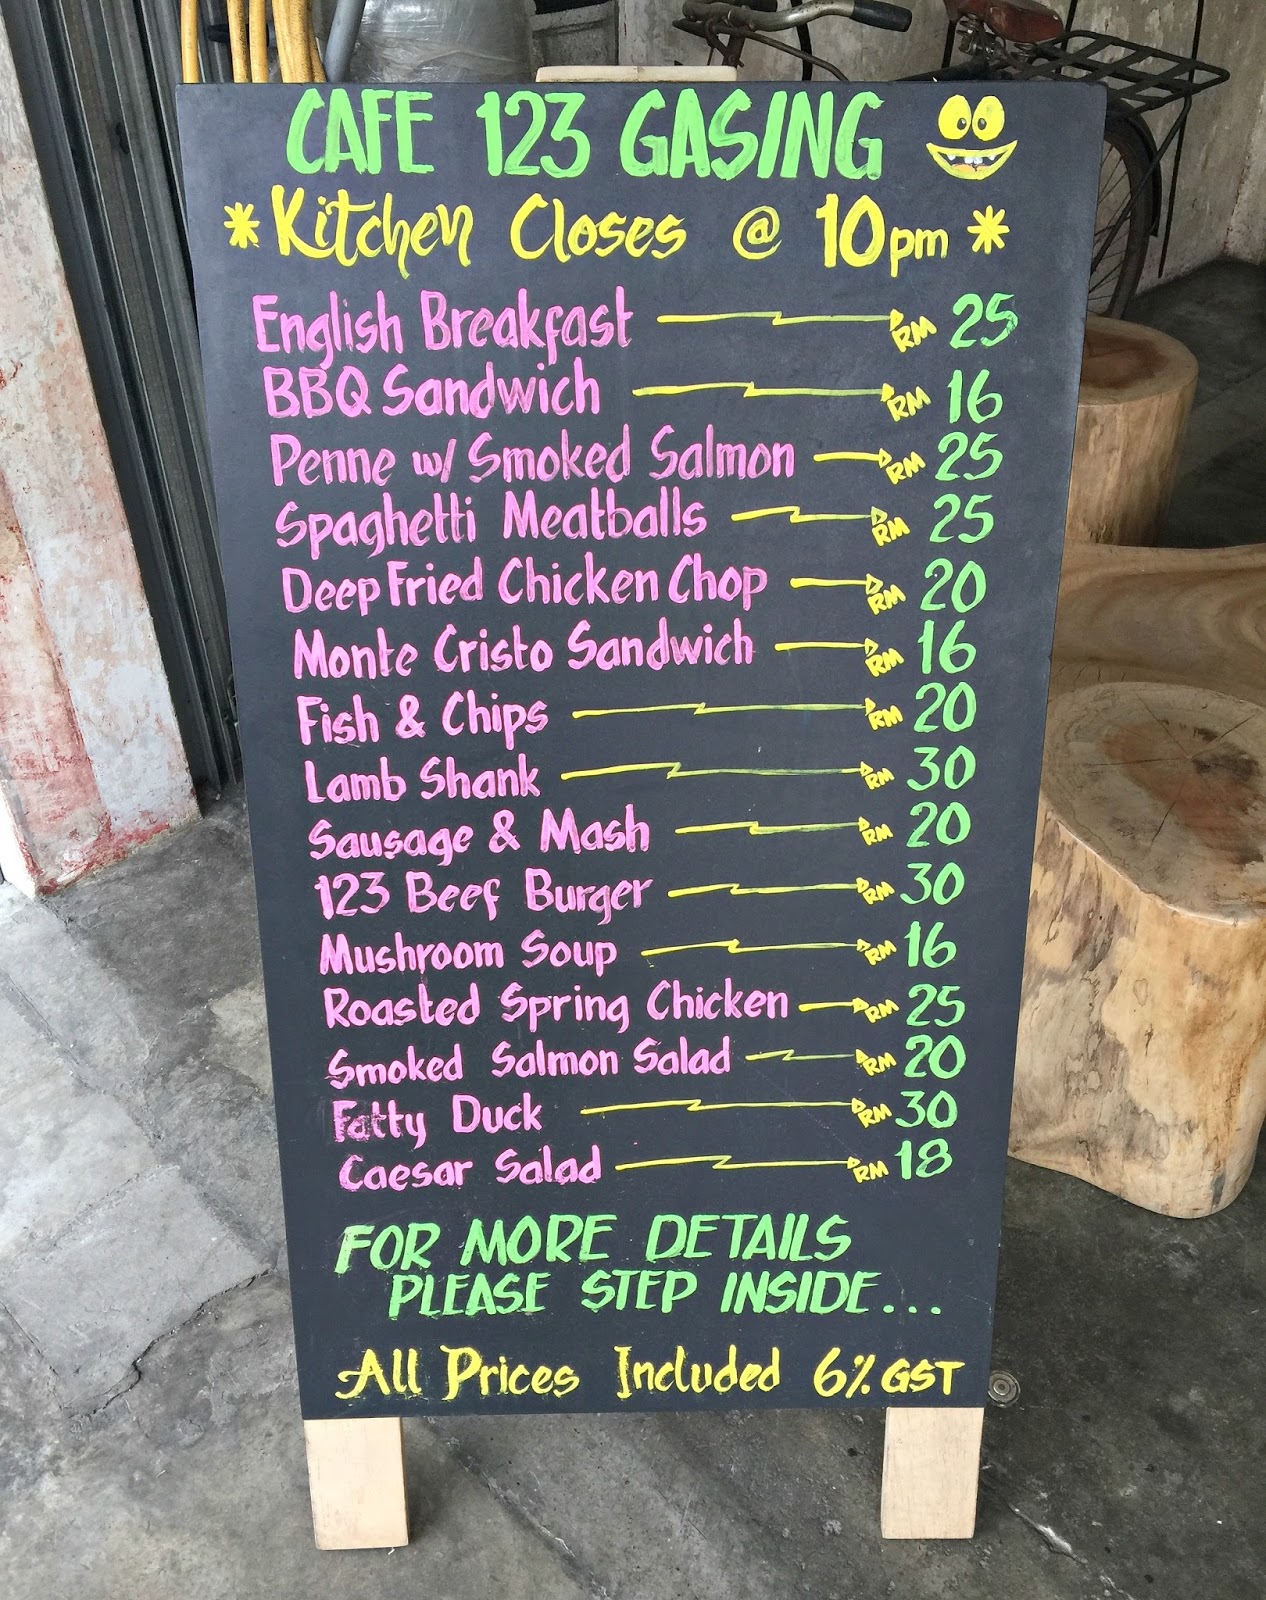 CAFE 123 GASING
*Kitchen Closes @ 10pm*
English Breakfast RM 25
BBQ Sandwich RM 16
Penne w/ Smoked Salmon RM 25
Spaghetti Meatballs RM 25
Deep Fried Chicken Chop RM 20
Monte Cristo Sandwich RM 16
Fish & Chips RM 20
Lamb Shank RM 30
Sausage & Mash RM 20
123 Beef Burger RM 30
Mushroom Soup RM 16
Roasted Spring Chicken RM 25
Smoked Salmon Salad RM 20
Fatty Duck RM 30
Caesar Salad RM 18
FOR MORE DETAILS
PLEASE STEP INSIDE...
All Prices Included 6% GST